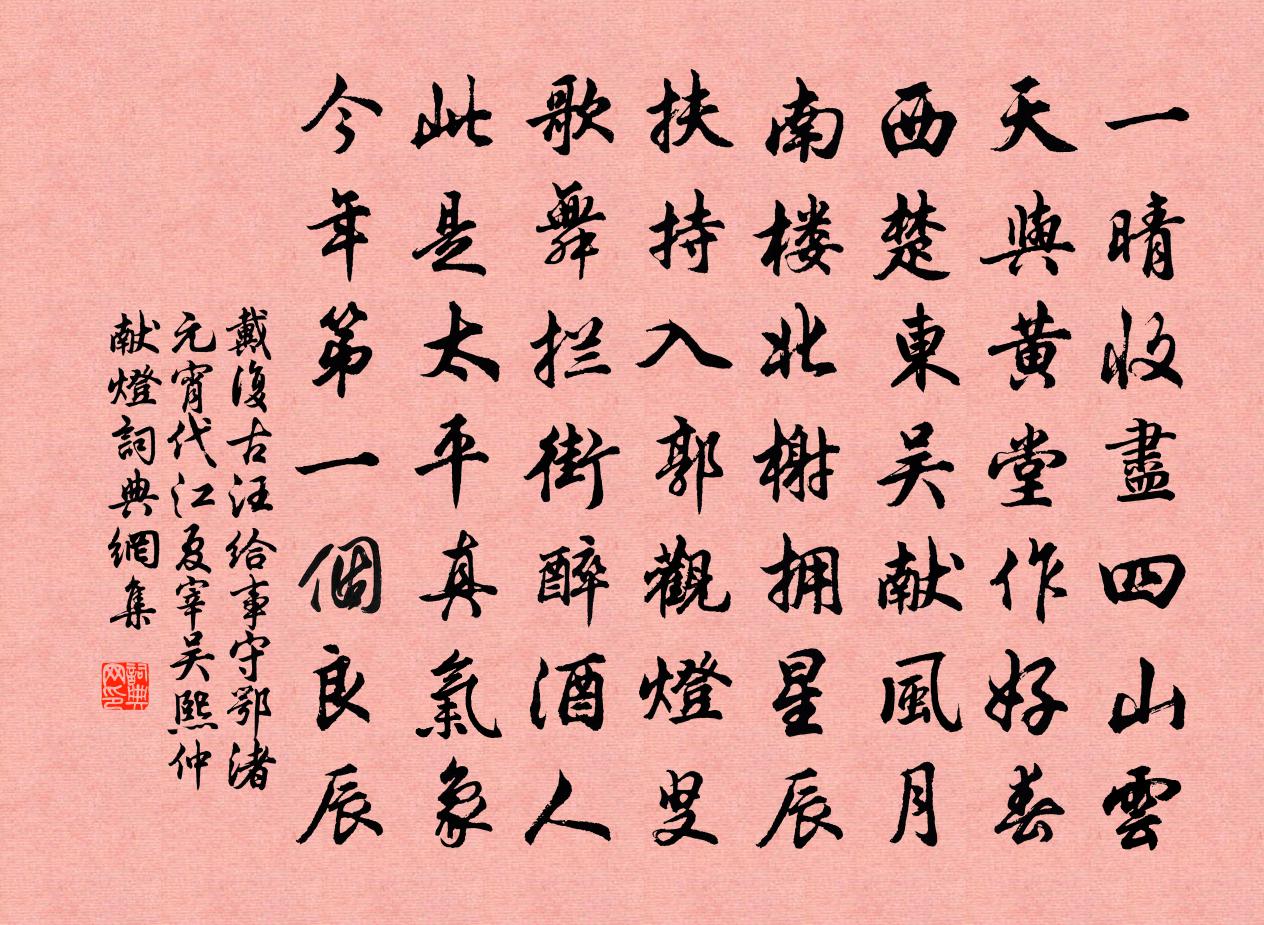 一晴收盡四山雲
天與黄堂作好春
西楚東吴献風月
南楼北榭拥星辰
扶持入郭觀燈叟
歌舞拦街醉酒人
此是太平真氣象
今年第一個良辰
戴復古汪给事守鄂渚
元宵代江夏宰吴熙仲
献燈詞典網集
詞典
网印